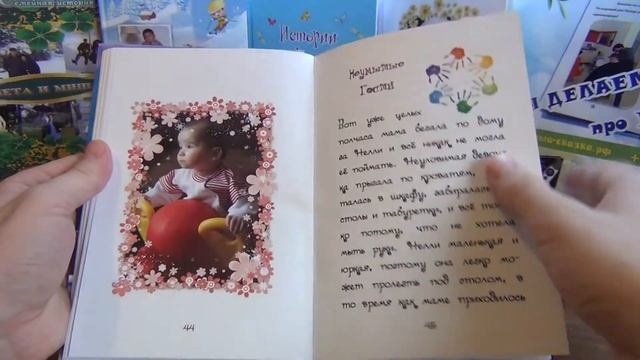 семейная история
Истории
ЛЕТА И МИ
ДЕЛАЕМ
про
сказка.рф
44
Неумытые
Гости
Вот уже целых
полчаса мама бегала по дому
за Нелли и всё никак не могла
её поймать. Неуловимая
ка прыгала по кроватям,
талась в шкафу, забиралась
столы и табуретки, и всё
ко потому, что не хотела
мыть руки. Нелли маленькая и
юркая, поэтому она легко мо-
жет пролезть под столом, в
то время как маме приходилось
45